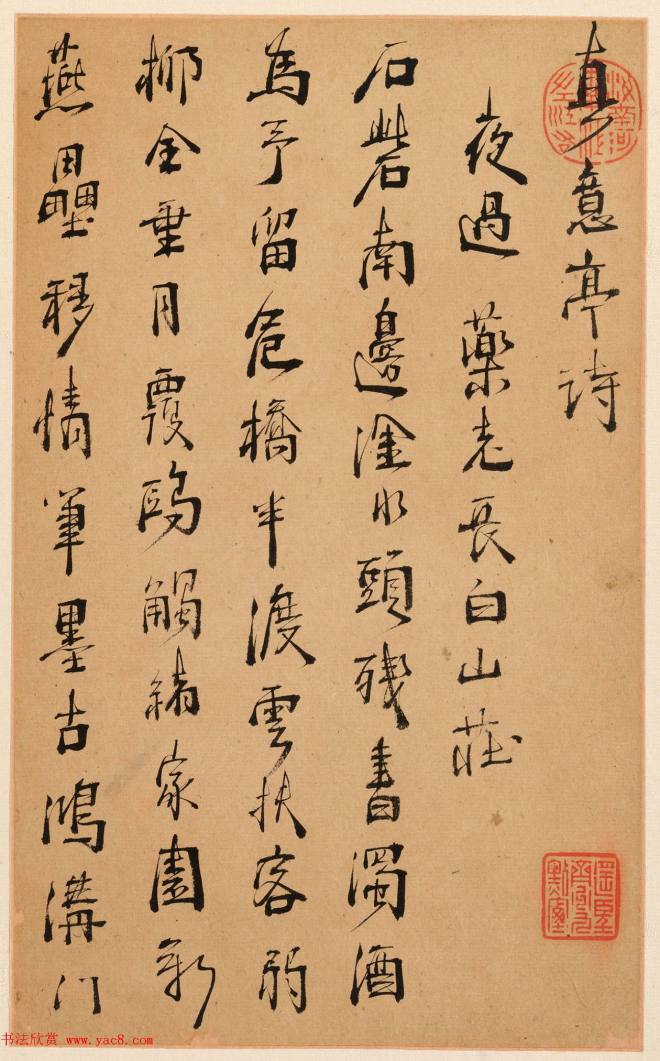 真意亭诗
夜過 藥老長白山莊
石砦南邊淦水頭殘書濁酒
為予留危橋半渡雲扶客弱
柳全垂月覆鷗觸緒家園新
燕壘移情筆墨古鴻溝门
书法欣赏 www.yac8.com